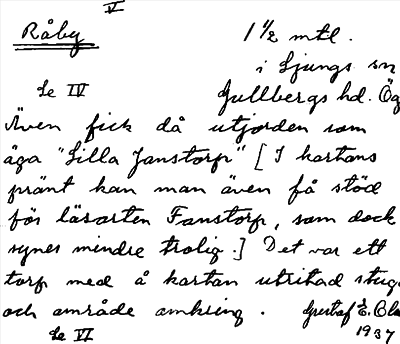 V
Råby 1 1/2 mtl.
i Ljungs sn
Se IV Gullbergs hd. Ög
Även fick då utjorden som
äga "Lilla Janstorp" [I kartans
pränt kan man även få stöd
för läsarten Fanstorp, som dock
synes mindre trolig.] Det var ett
torp med å kartan utritad stuga
och område omkring. Gustaf E.
Se VI 1937